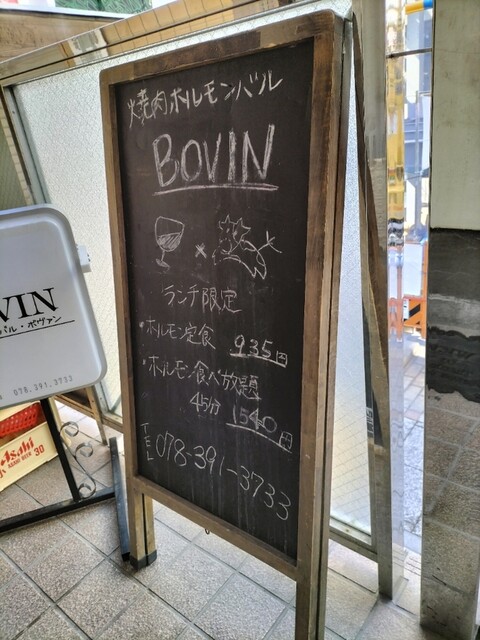 焼肉ホルモンバル
BOVIN
×
ランチ限定
・ホルモン定食 935円
・ホルモン食べ放題
45分 1540円
TEL 078-391-3733
VIN
バル・ボヴァン
078.391.3733
Asahi
30